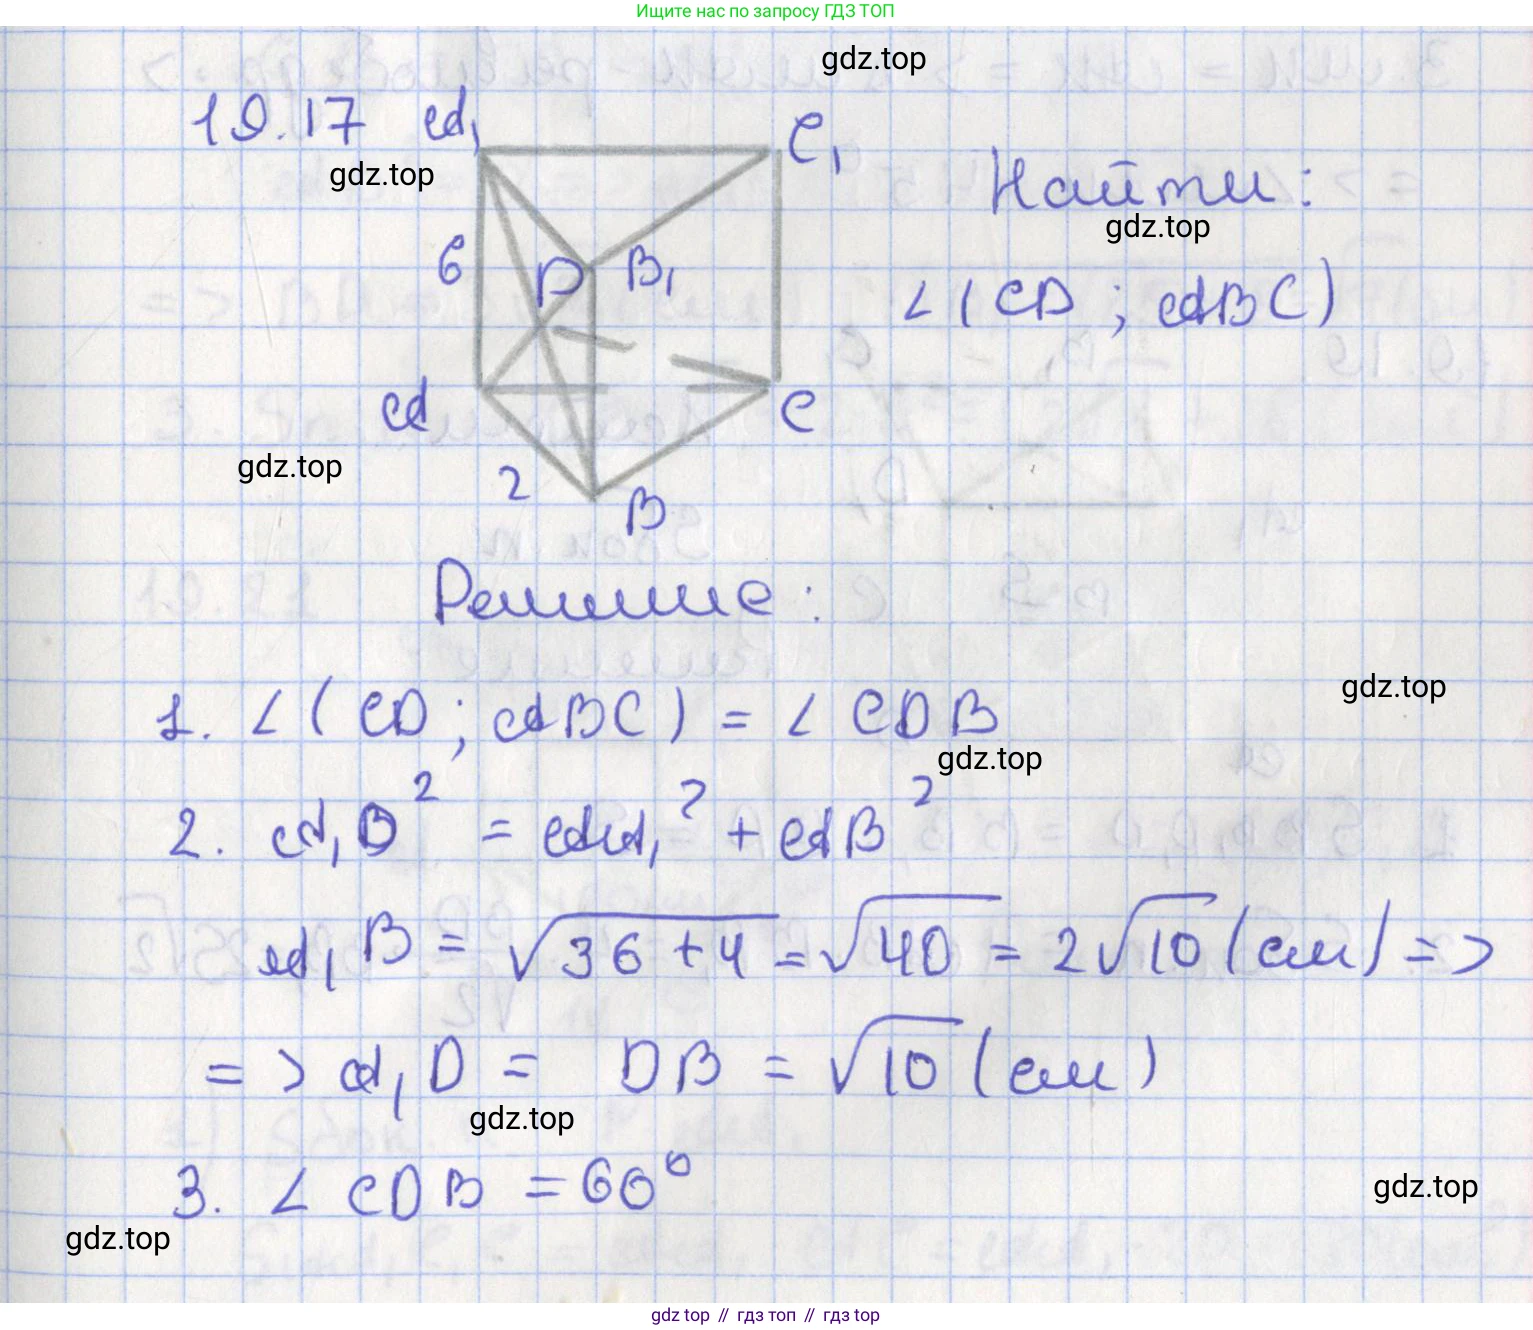 Ищите нас по запросу ГДЗ ТОП
gdz.top
19.17 A₁ C₁
gdz.top
Найти:
gdz.top
6 D B₁
∠(CD; ABC)
A C
gdz.top
2 B
Решение:
gdz.top
1. ∠(CD; ABC) = ∠CDB
gdz.top
2. A₁B² = AA₁² + AB²
A₁B = √36+4 = √40 = 2√10 (см) =>
=> A₁D = DB = √10 (см)
gdz.top
3. ∠CDB = 60°
gdz.top
gdz.top
gdz top // гдз топ // гдз top